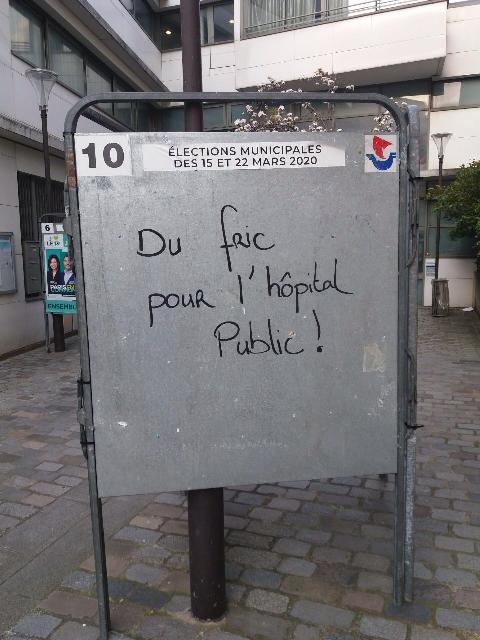 10
ÉLECTIONS MUNICIPALES
DES 15 ET 22 MARS 2020
Du fric
pour l'hôpital
Public !
6
ENSEMB